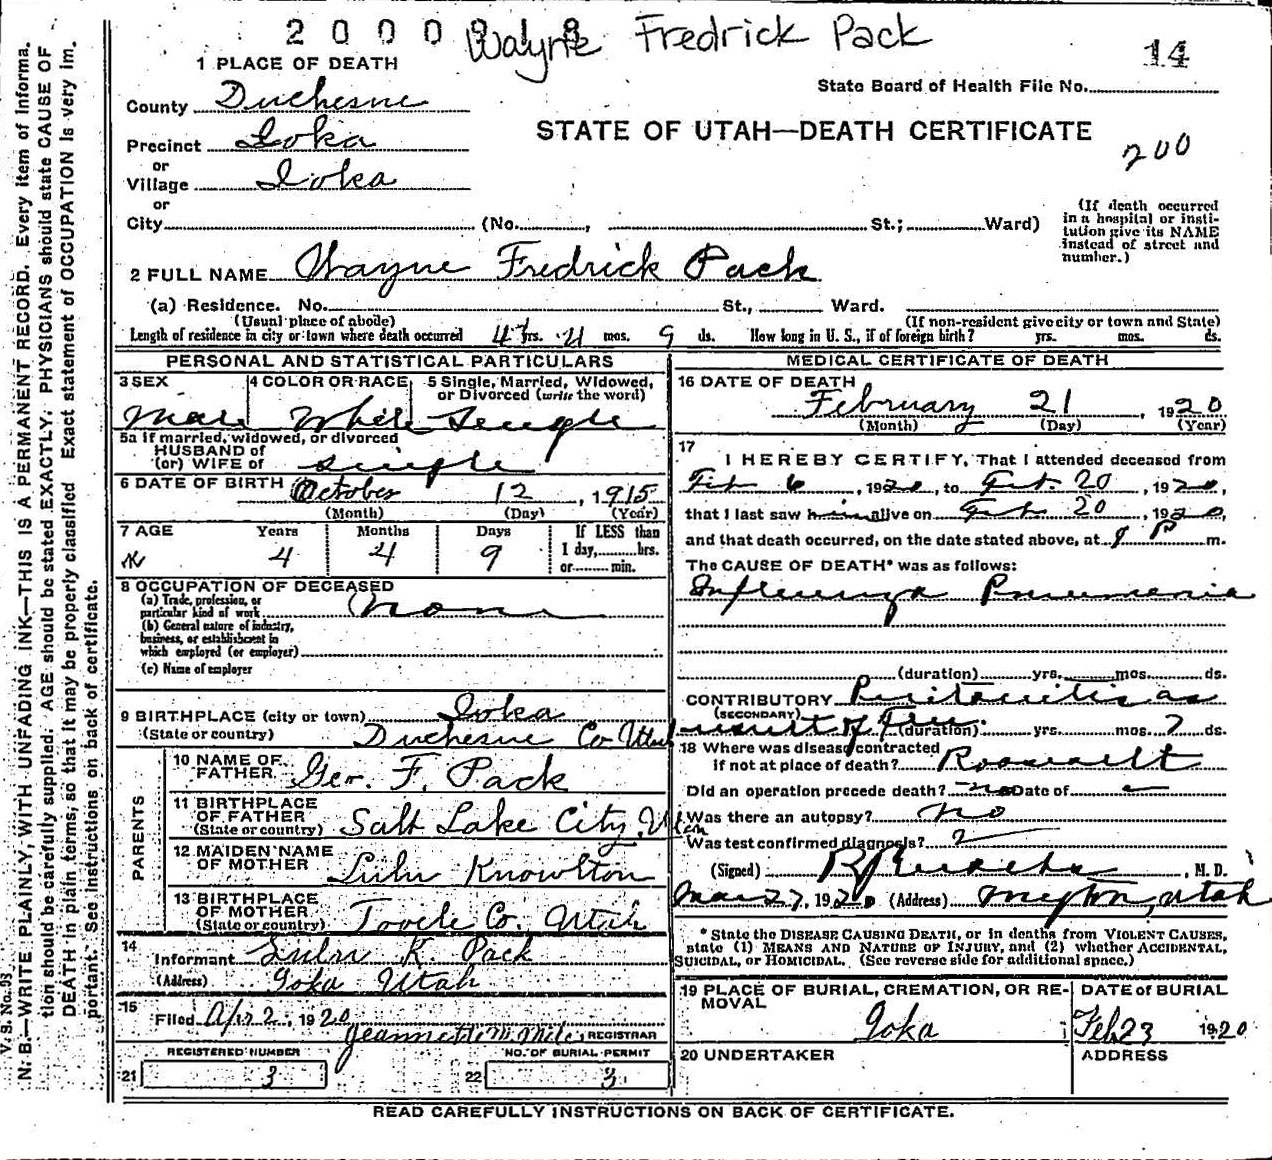 2 0 0 0 9 1 8
Wayne Fredrick Pack
14
1 PLACE OF DEATH
State Board of Health File No.
County Duchesne
STATE OF UTAH—DEATH CERTIFICATE
200
Precinct Ioka
or
Village Ioka
or
City (No. , St.; Ward)
(If death occurred
in a hospital or insti-
tution give its NAME
instead of street and
number.)
2 FULL NAME Wayne Fredrick Pack
(a) Residence. No. St., Ward.
(Usual place of abode) (If non-resident give city or town and State)
Length of residence in city or town where death occurred 4 yrs. 4 mos. 9 ds. How long in U. S., if of foreign birth? yrs. mos. ds.
PERSONAL AND STATISTICAL PARTICULARS
3 SEX 4 COLOR OR RACE 5 Single, Married, Widowed,
or Divorced (write the word)
Male White Single
5a if married, widowed, or divorced
HUSBAND of
(or) WIFE of single
6 DATE OF BIRTH October 12, 1915
(Month) (Day) (Year)
7 AGE Years Months Days If LESS than
4 4 9 1 day, hrs.
or min.
8 OCCUPATION OF DECEASED
(a) Trade, profession, or
particular kind of work none
(b) General nature of industry,
business, or establishment in
which employed (or employer)
(c) Name of employer
9 BIRTHPLACE (city or town) Ioka
(State or country) Duchesne Co Utah
PARENTS
10 NAME OF
FATHER Geo. F. Pack
11 BIRTHPLACE
OF FATHER
(State or country) Salt Lake City, Utah
12 MAIDEN NAME
OF MOTHER Lulu Knowlton
13 BIRTHPLACE
OF MOTHER
(State or country) Tooele Co. Utah
14
Informant Lulu K. Pack
(Address) Ioka Utah
15
Filed Apr 2, 1920
Jeannette M. Miles REGISTRAR
REGISTERED NUMBER NO. OF BURIAL PERMIT
21 3 22 3
MEDICAL CERTIFICATE OF DEATH
16 DATE OF DEATH
February 21, 1920
(Month) (Day) (Year)
17
I HEREBY CERTIFY, That I attended deceased from
Feb 6, 1920, to Feb. 20, 1920,
that I last saw him alive on Feb 20, 1920,
and that death occurred, on the date stated above, at P m.
The CAUSE OF DEATH* was as follows:
Influenza Pneumonia
(duration) yrs. mos. ds.
CONTRIBUTORY Peritonitis as
(SECONDARY)
result of Flu. (duration) yrs. mos. 7 ds.
18 Where was disease contracted
if not at place of death? Roosevelt
Did an operation precede death? no Date of
Was there an autopsy? no
Was test confirmed diagnosis?
(Signed) , M. D.
Mar 27, 1920 (Address) Myton, Utah
* State the DISEASE CAUSING DEATH, or in deaths from VIOLENT CAUSES,
state (1) MEANS AND NATURE OF INJURY, and (2) whether ACCIDENTAL,
SUICIDAL, or HOMICIDAL. (See reverse side for additional space.)
19 PLACE OF BURIAL, CREMATION, OR RE-
MOVAL
Ioka
DATE OF BURIAL
Feb 23 1920
20 UNDERTAKER ADDRESS
READ CAREFULLY INSTRUCTIONS ON BACK OF CERTIFICATE.
V. S. No. 93
N. B.—WRITE PLAINLY, WITH UNFADING INK—THIS IS A PERMANENT RECORD. Every item of informa-
tion should be carefully supplied. AGE should be stated EXACTLY. PHYSICIANS should state CAUSE OF
DEATH in plain terms, so that it may be properly classified Exact statement of OCCUPATION is very im-
portant. See instructions on back of certificate.